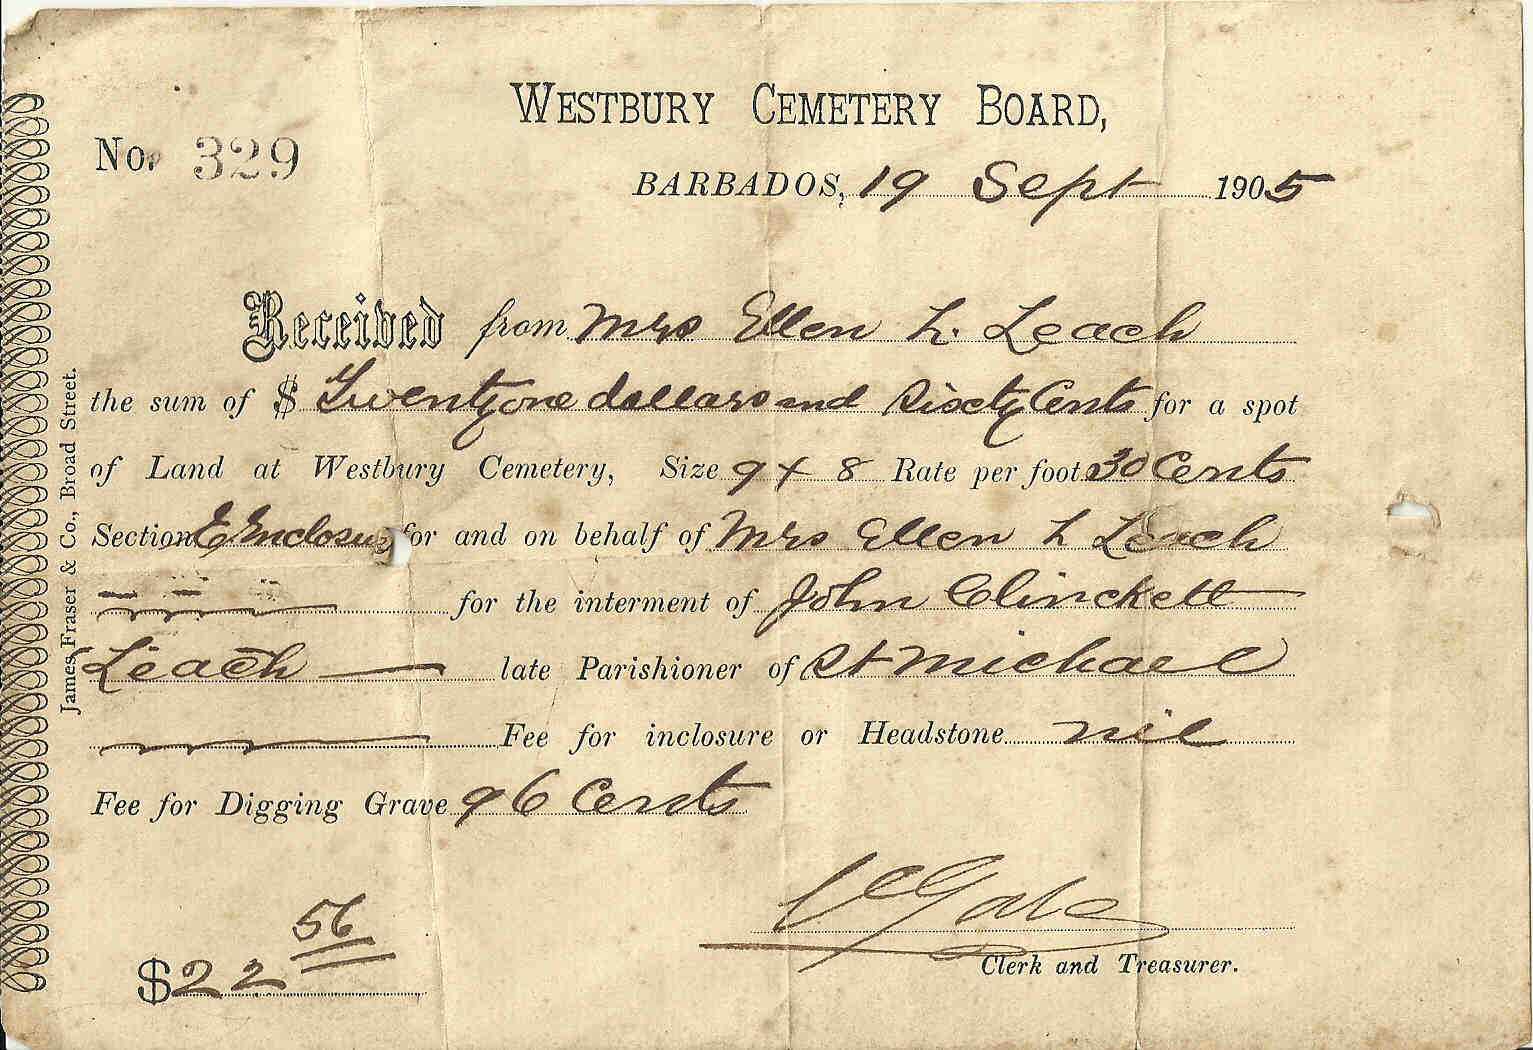 WESTBURY CEMETERY BOARD,
No. 329
BARBADOS, 19 Sept 1905
Received from Mrs Ellen L. Leach
the sum of $ Twenty one dollars and Sixty Cents for a spot
of Land at Westbury Cemetery, Size 9 x 8 Rate per foot 30 Cents
Section E Enclosure for and on behalf of Mrs Ellen L Leach
for the interment of John Clinckett
Leach late Parishioner of St Michael
Fee for inclosure or Headstone nil
Fee for Digging Grave 96 Cents
$22 56
Clerk and Treasurer.
James Fraser & Co., Broad Street.